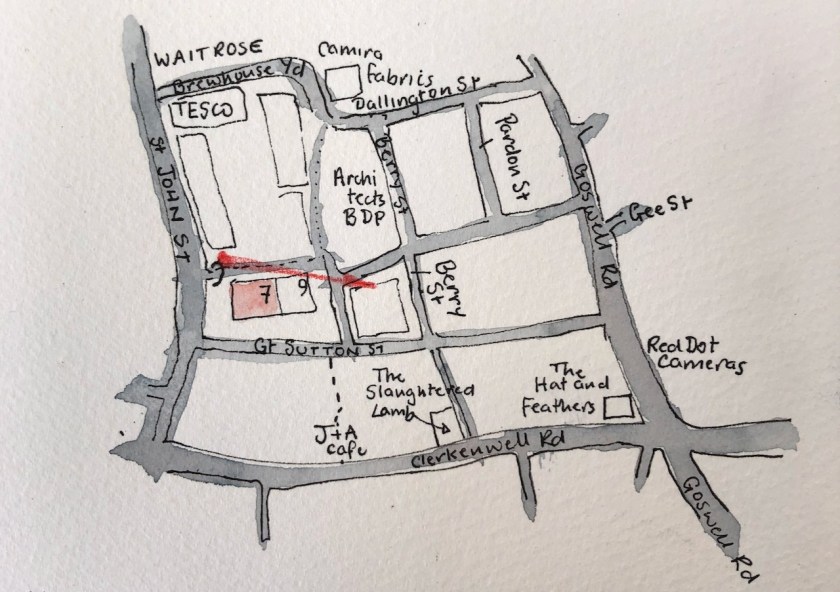 WAITROSE
Brewhouse Yd
TESCO
Camira
Fabrics
Dallington St
St JOHN St
Archi
tects
BDP
Berry St
Pardon St
Goswell Rd
Gee St
7
9
Berry
St
Gt SUTTON ST
Red Dot
Cameras
The
Slaughtered
Lamb
The
Hat and
Feathers
J+A
cafe
Clerkenwell Rd
Goswell Rd